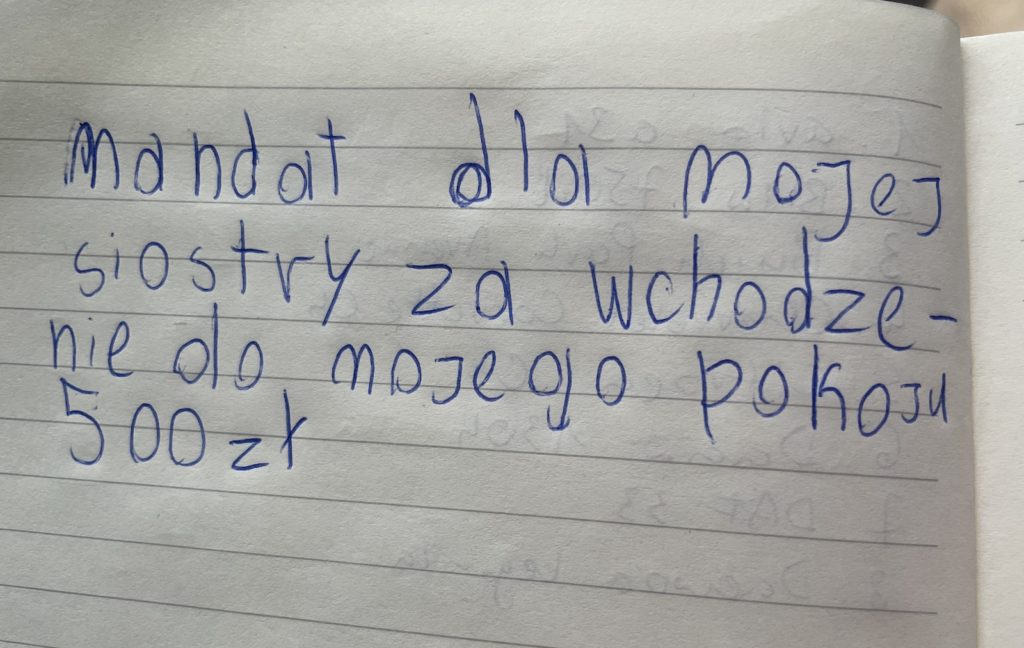 mandat dla mojej
siostry za wchodze-
nie do mojego pokoju
500 zł